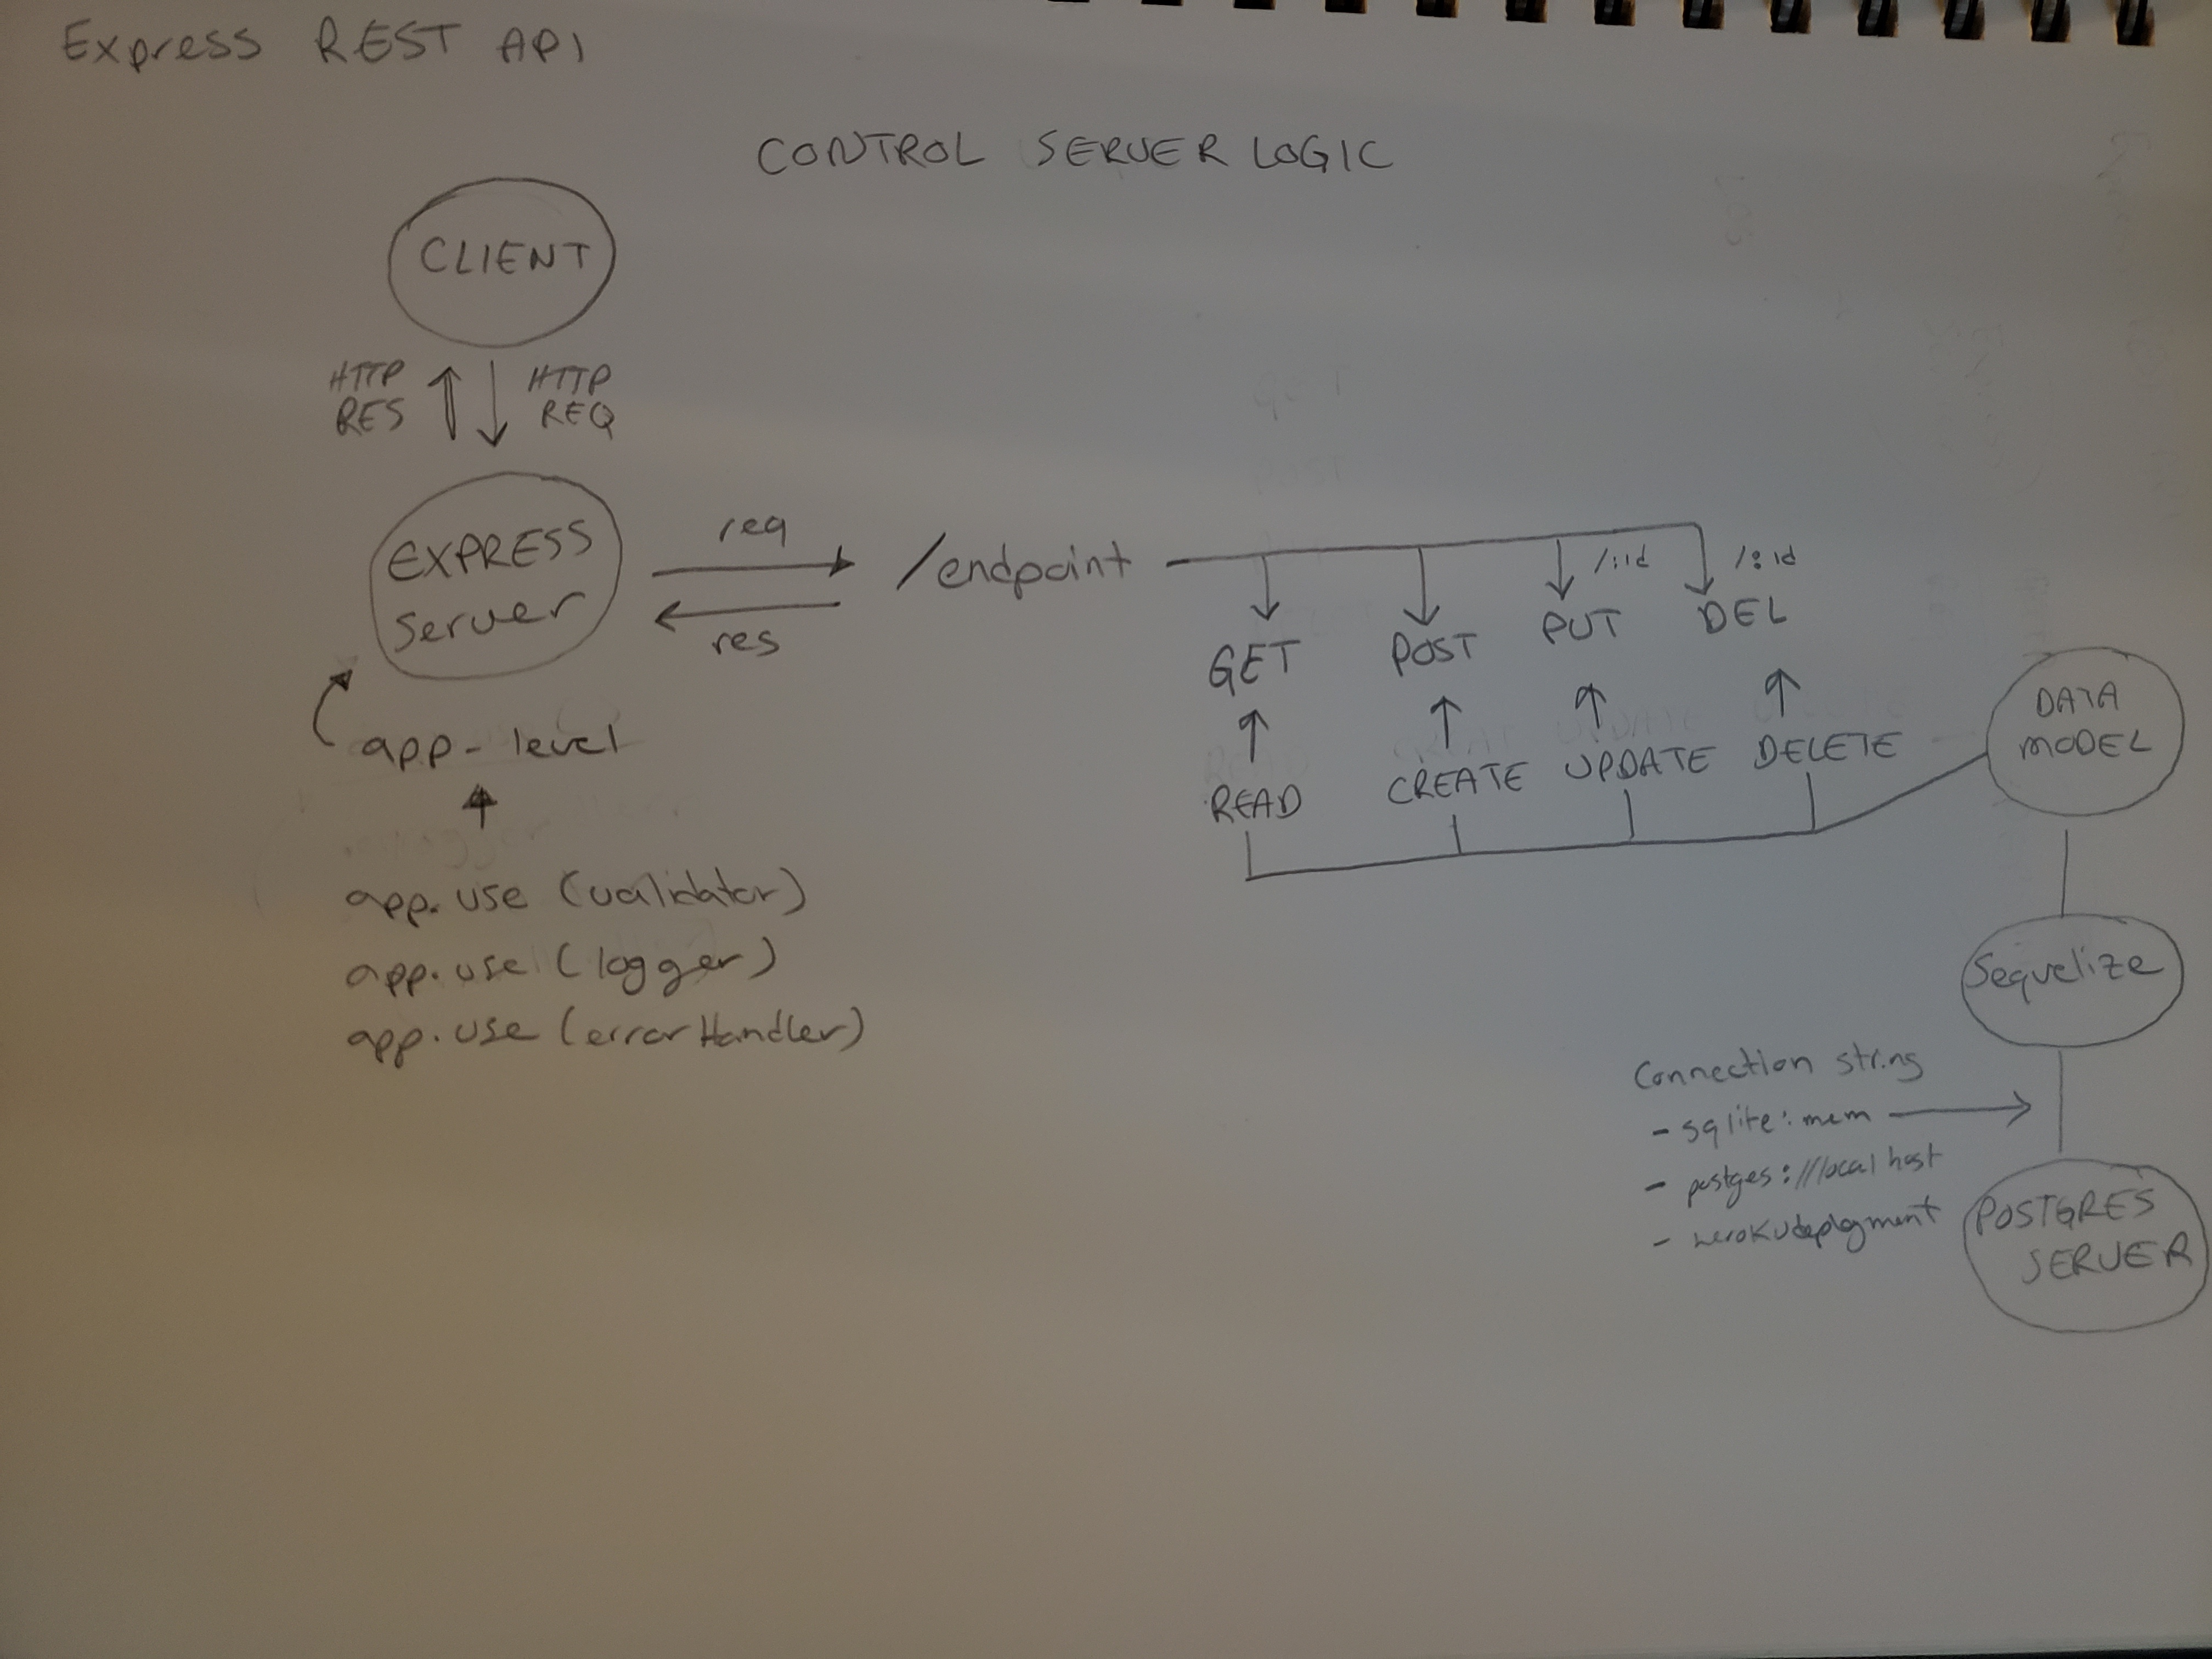 Express REST API
CONTROL SERVER LOGIC
CLIENT
HTTP RES
HTTP REQ
EXPRESS
Server
req
res
/endpoint
/:id
/:id
GET
POST
PUT
DEL
READ
CREATE
UPDATE
DELETE
DATA
MODEL
app-level
app.use (validator)
app.use (logger)
app.use (errorHandler)
Sequelize
Connection string
- sqlite:mem
- postges://localhost
- heroku deployment
POSTGRES
SERVER